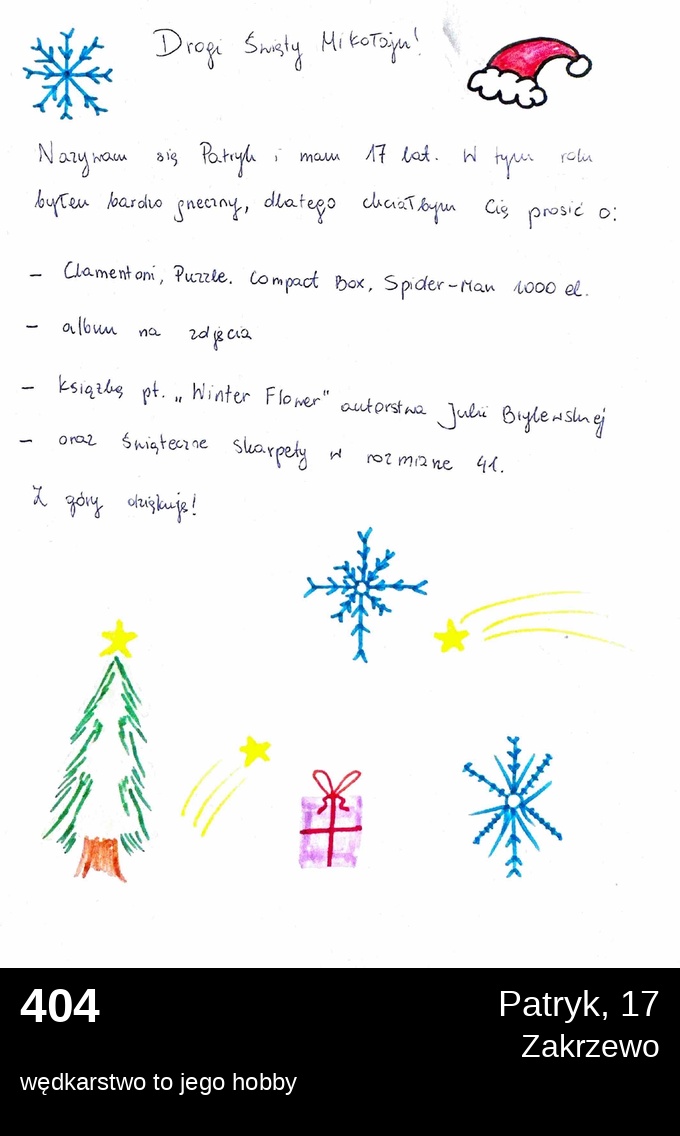 Drogi Święty Mikołaju!
Nazywam się Patryk i mam 17 lat. W tym roku
byłem bardzo grzeczny, dlatego chciałbym Cię prosić o:
- Clamentoni, Puzzle. Compact Box, Spider-Man 1000 el.
- album na zdjęcia
- książkę pt. „Winter Flower" autorstwa Julii Brylewskiej
- oraz świąteczne skarpety w rozmiarze 41.
Z góry dziękuję!
404
Patryk, 17
Zakrzewo
wędkarstwo to jego hobby